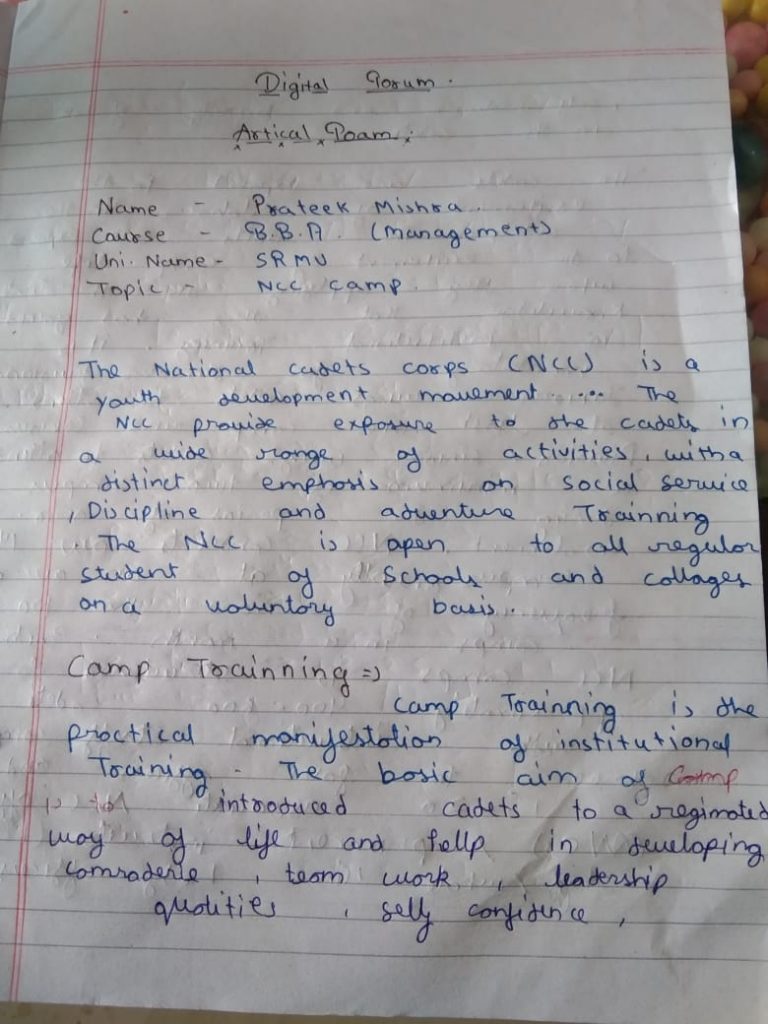 Digital Forum.
Artical Poam:
Name - Prateek Mishra.
Course - B.B.A. (Management)
Uni. Name - SRMU
Topic - NCC Camp.
The National cadets corps (NCC) is a
youth development movement .... The
NCC provide exposure to the cadets in
a wide range of activities, with a
distinct emphosis on social service
, Discipline and adventure Trainning
. The NCC is open to all regular
student of Schools and collages
on a voluntory basis.
Camp Trainning =>
Camp Trainning is the
practical manifestation of institutional
Training. The basic aim of Camp
is to introduced cadets to a regimated
way of life and fellp in developing
comraderie, team work, leadership
qualities, self confidence,